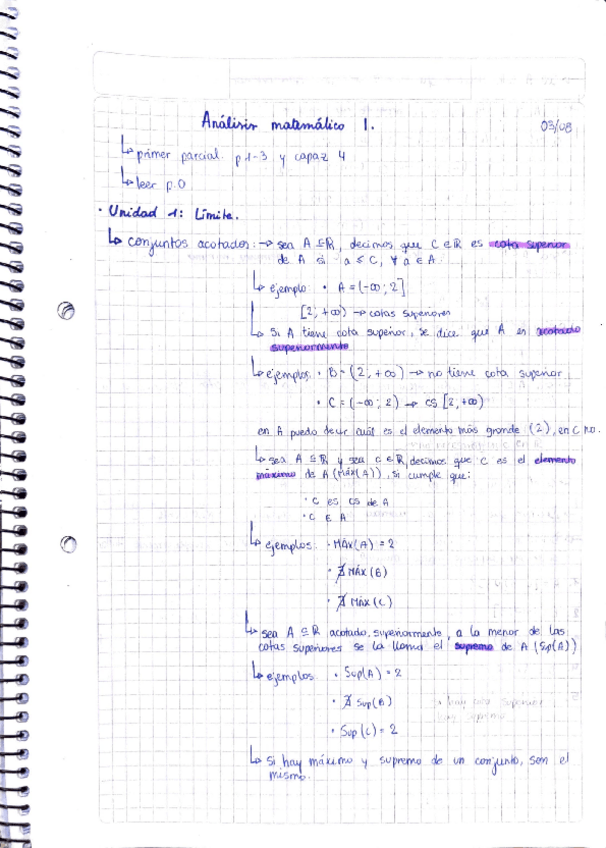 Análisis matemático 1. 03/08
↳ primer parcial: p.1-3 y capaz 4
↳ leer p.0
· Unidad 1: Límite.
↳ conjuntos acotados: → sea A ⊆ ℝ, decimos que C ∈ ℝ es cota superior
de A si a ≤ C, ∀ a ∈ A.
↳ ejemplo: · A = (-∞; 2]
[2; +∞) → cotas superiores
↳ Si A tiene cota superior, se dice que A es acotado
superiormente
↳ ejemplos: · B = (2, +∞) → no tiene cota superior
· C = (-∞; 2) → CS [2, +∞)
en A puedo decir cuál es el elemento más grande (2), en C no.
↳ sea A ⊆ ℝ y sea c ∈ ℝ, decimos que C es el elemento
máximo de A (Máx(A)), si cumple que:
· C es CS de A
· C ∈ A
↳ ejemplos: · Máx(A) = 2
· ∄ Máx (B)
· ∄ Máx (C)
↳ sea A ⊆ ℝ acotado superiormente, a la menor de las
cotas superiores se la llama el supremo de A (Sup(A))
↳ ejemplos: · Sup(A) = 2
· ∄ Sup(B)
· Sup (C) = 2
↳ Si hay máximo y supremo de un conjunto, son el
mismo.